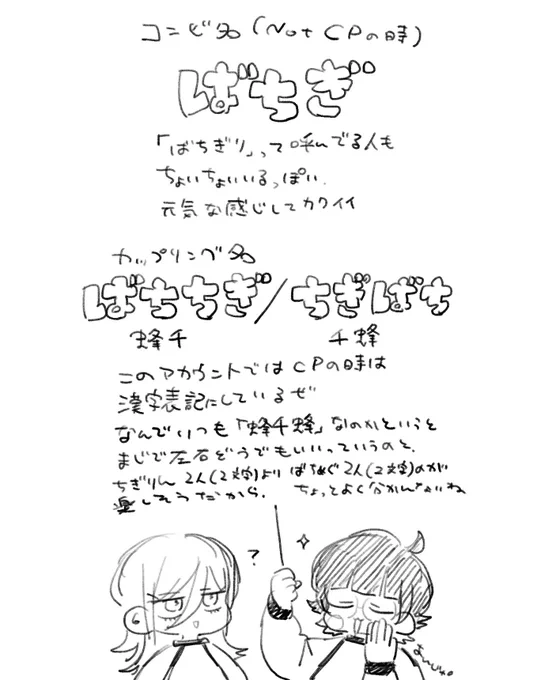 コンビ名(Not CPの時)
ばちぎ
「ばちぎり」って呼んでる人も
ちょいちょいいるっぽい.
元気な感じしてカワイイ
カップリング名
ばちちぎ/ちぎばち
蜂千 千蜂
このアカウントではCPの時は
漢字表記にしているぜ
なんでいつも「蜂千蜂」なのかというと
まじで左右どうでもいいっていうのと、
ちぎりん2人(2文字)より ばちめぐ2人(2文字)のが
楽しそうだから. ちょっとよく分かんないね
?